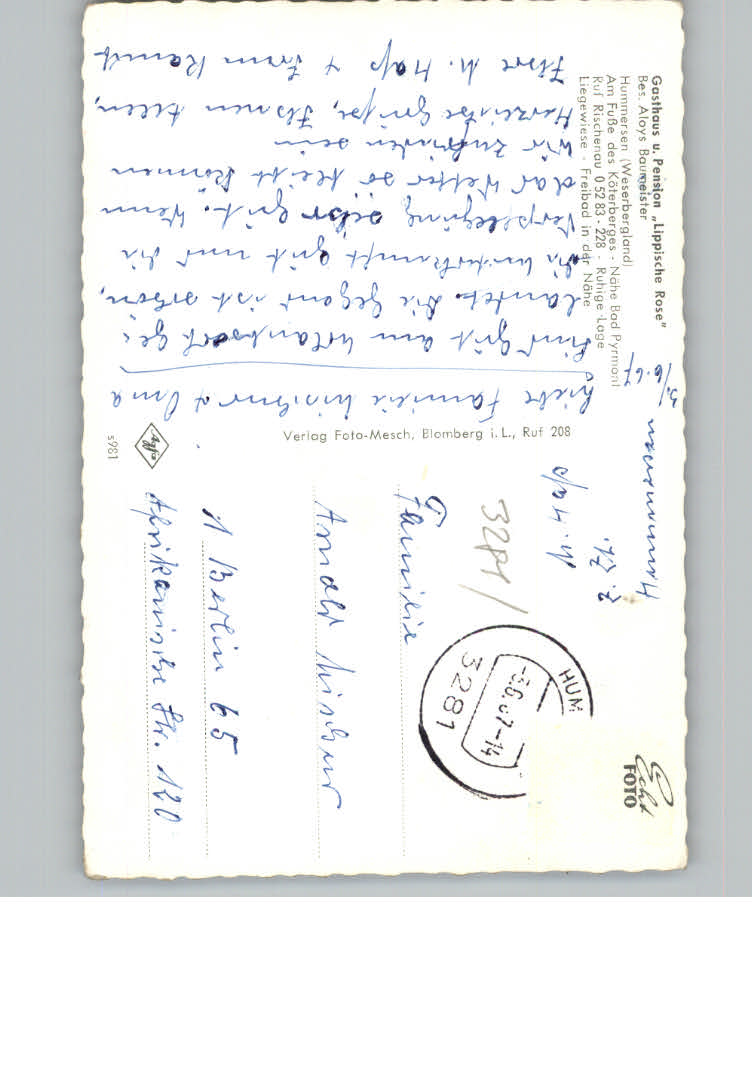 Gasthaus u. Pension „Lippische Rose"
Bes. Aloys Baumeister
Hummersen (Weserbergland)
Am Fuße des Köterberges - Nähe Bad Pyrmont
Ruf Rischenau 0 52 83 - 228 - Ruhige Lage
Liegewiese - Freibad in der Nähe
Hummersen
3./6. 67
Liebe Familie & Oma
Sind gut am Urlaubsort ge-
landet. Die Gegend ist schön,
die Unterkunft gut und die
Verpflegung sehr gut. Wenn
das Wetter so bleibt können
wir zufrieden sein
Herzliche Grüße, Ihnen allen,
Ihre M. Haß + Frau
Verlag Foto-Mesch, Blomberg i. L., Ruf 208
Agfa
s981
Echt
FOTO
HUM
-3.6.67-14
3281
z. Zt.
M. Haß
3281/
Familie
Arnold
1 Berlin 65
Afrikanische Str. 120